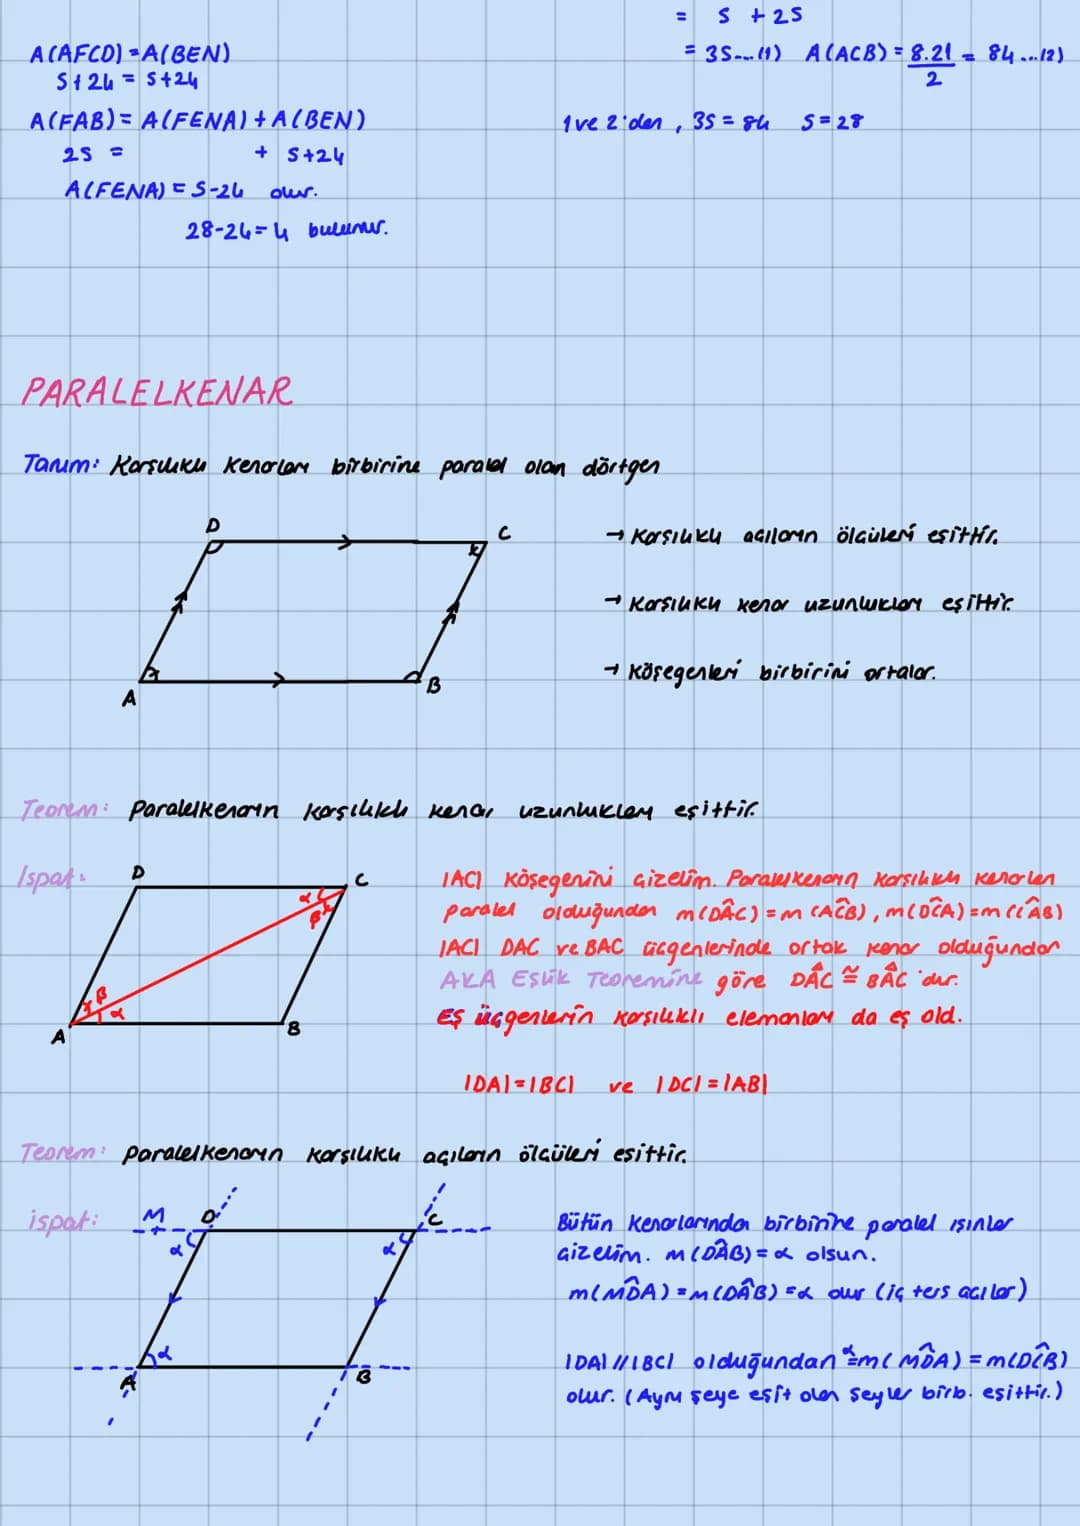 = S + 2S
= 3S....(1) A(ACB) = 8.21 / 2 = 84 ...(2)
1 ve 2'den , 3S = 84 S = 28
A(AFCD) = A(BEN)
S+24 = S+24
A(FAB) = A(FENA) + A(BEN)
2S = + S+24
A(FENA) = S-24 olur.
28-24=4 bulunur.
PARALELKENAR
Tanım: Karşılıklı kenarları birbirine paralel olan dörtgen
D C
A B
→ Karşılıklı açıların ölçüleri eşittir.
→ Karşılıklı kenar uzunlukları eşittir.
→ Köşegenleri birbirini ortalar.
Teorem: Paralelkenarın karşılıklı kenar uzunlukları eşittir.
Ispat:
D C
α
β
β
α
A B
|AC| köşegenini çizelim. Paralelkenarın karşılıklı kenarları
paralel olduğundan m(DÂC) = m(AĈB), m(DĈA) = m(CÂB)
|AC| DAC ve BAC üçgenlerinde ortak kenar olduğundan
AKA Eşlik Teoremine göre DÂC ≅ BÂC 'dur.
Eş üçgenlerin karşılıklı elemanları da eş old.
|DA| = |BC| ve |DC| = |AB|
Teorem: Paralelkenarın karşılıklı açıların ölçüleri eşittir.
ispat:
M D C
α α
α
A B
Bütün kenarlarından birbirine paralel ışınlar
çizelim. m(DÂB) = α olsun.
m(MD̂A) = m(DÂB) = α olur (iç ters açılar)
|DA| // |BC| olduğundan α = m(MD̂A) = m(DĈB)
olur. (Aynı şeye eşit olan şeyler birb. eşittir.)